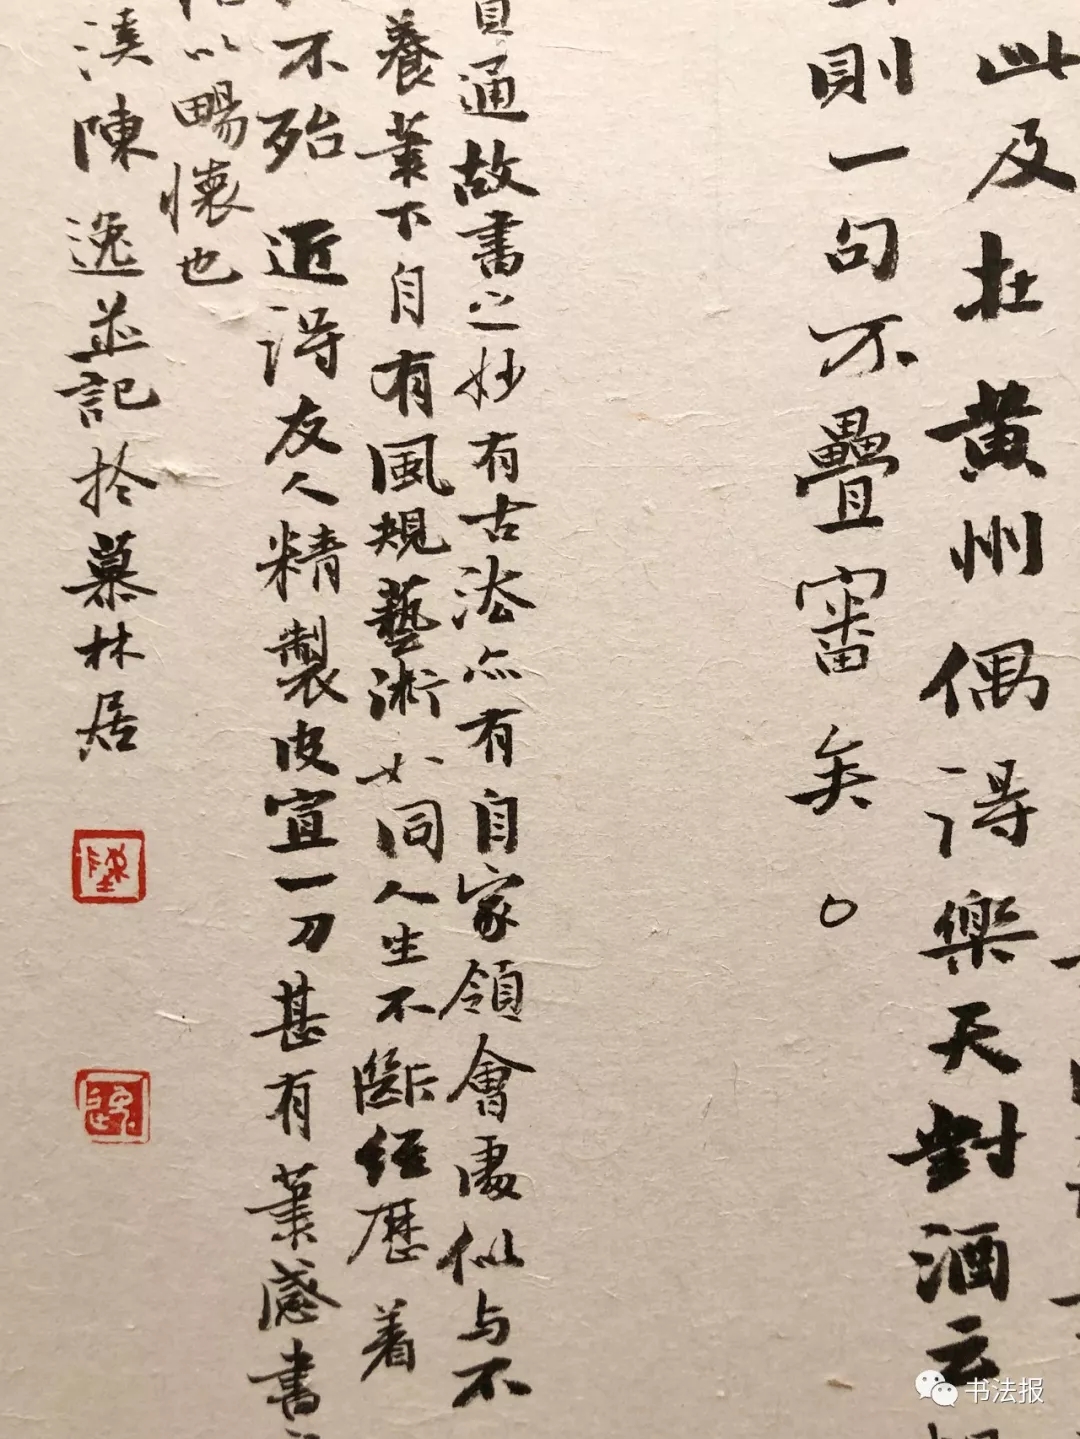 此及在黄州偶得樂天對酒云
則一句不疊審矣。
通故書之妙有古法亦有自家領會處似与不
養葉下自有風規藝術如同人生不斷經歷着
不殆近得友人精製皮宣一刀甚有葉感書
以暢懷也
溪陳逸並記於慕林居
陳
逸
书法报